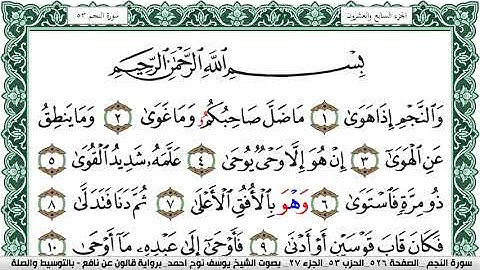 الجزء السابع والعشرون
سورة النجم ٥٣
بِسْمِ اللَّهِ الرَّحْمَٰنِ الرَّحِيمِ
وَالنَّجْمِ إِذَا هَوَىٰ ١ مَا ضَلَّ صَاحِبُكُمُۥ وَمَا غَوَىٰ ٢ وَمَا يَنطِقُ
عَنِ الْهَوَىٰ ٣ إِنْ هُوَ إِلَّا وَحْيٌ يُوحَىٰ ٤ عَلَّمَهُۥ شَدِيدُ الْقُوَىٰ ٥
ذُو مِرَّةٍ فَاسْتَوَىٰ ٦ وَهْوَ بِالْأُفُقِ الْأَعْلَىٰ ٧ ثُمَّ دَنَا فَتَدَلَّىٰ ٨
فَكَانَ قَابَ قَوْسَيْنِ أَوْ أَدْنَىٰ ٩ فَأَوْحَىٰ إِلَىٰ عَبْدِهِۦ مَا أَوْحَىٰ ١٠
سورة النجم _ الصفحة ٥٢٦ _ الحزب ٥٣ _ الجزء ٢٧ _ بصوت الشيخ يوسف نوح احمد _ برواية قالون عن نافع - بالتوسيط والصلة